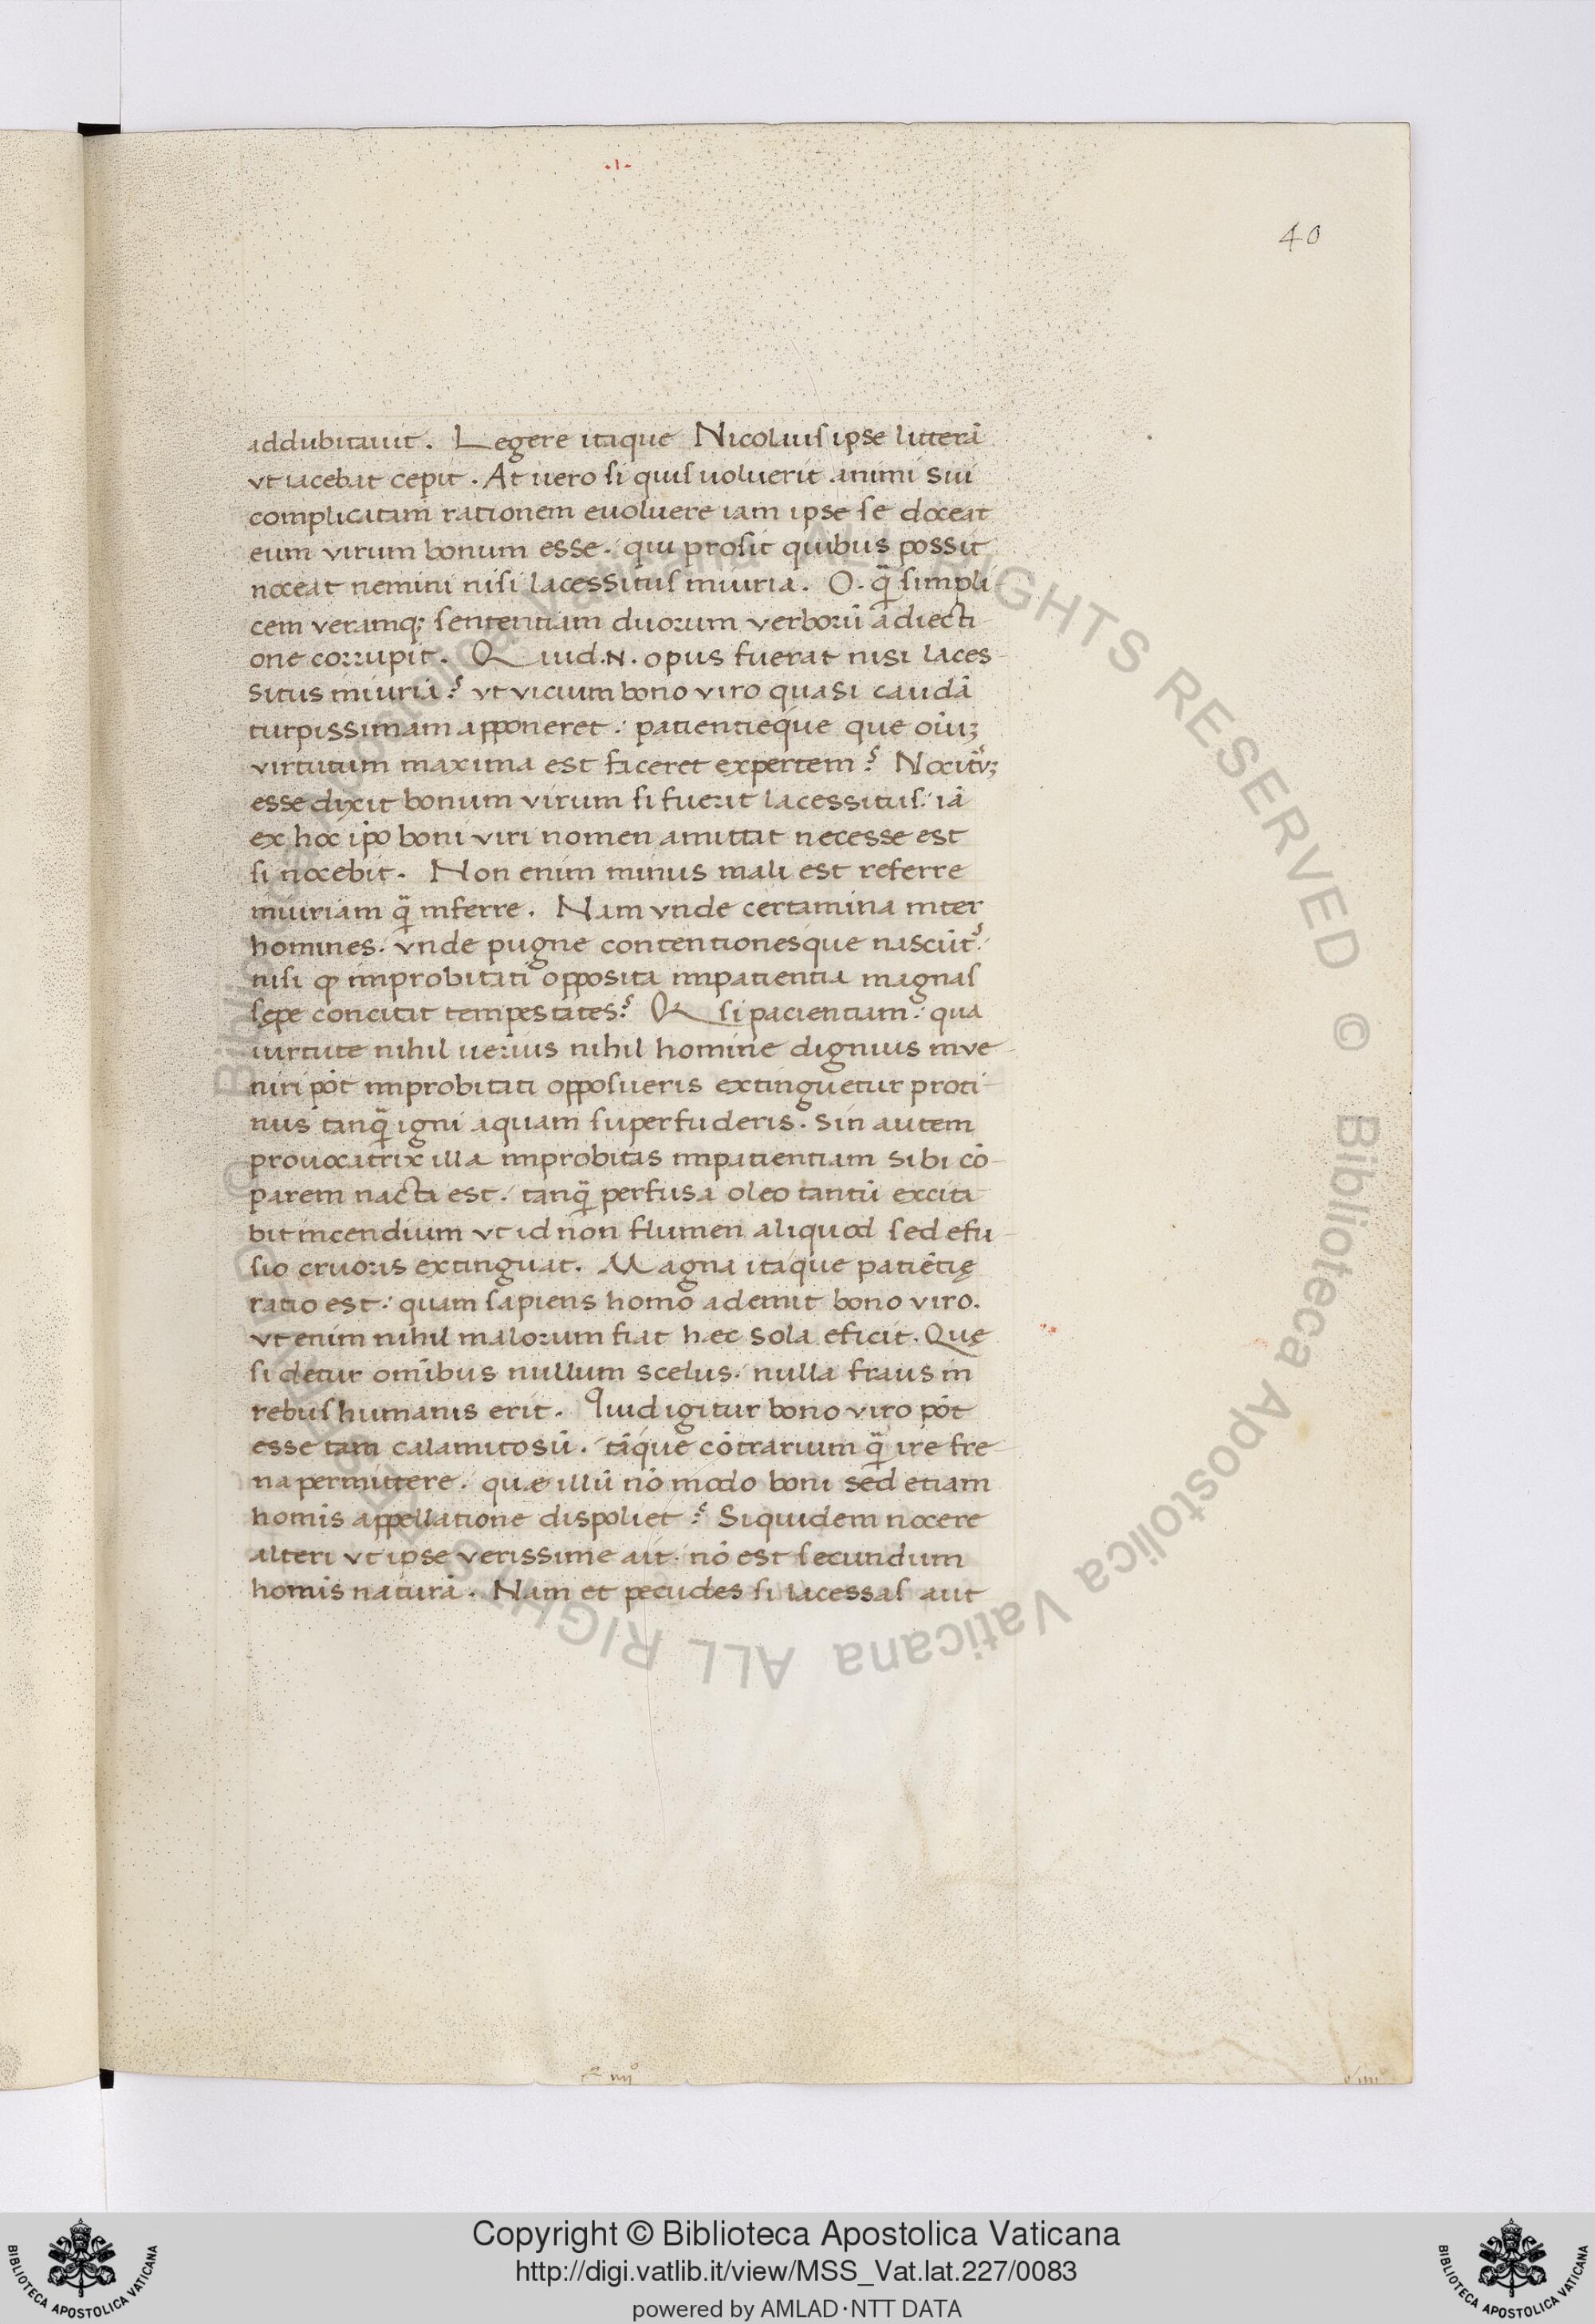 ·1·
40
addubitauit. Legere itaque Nicolaus ipse litterā
vt iacebat cepit. At uero si quis uoluerit animi sui
complicatam rationem euoluere iam ipse se doceat
eum virum bonum esse. qui prosit quibus possit
noceat nemini nisi lacessitus iniuria. O. q̄ simpli-
cem veramq; sententiam duorum verborū adiecti
one corrupit. Quid .N. opus fuerat nisi laces-
situs iniuriā? vt vicium bono viro quasi caudā
turpissimam apponeret: patientieque que oīuꝫ
virtutum maxima est faceret expertem? Nocitūꝫ
esse dixit bonum virum si fuerit lacessitus: iā
ex hoc ip̄o boni viri nomen amittat necesse est
si nocebit. Non enim minus mali est referre
iniuriam q̄ inferre. Nam vnde certamina inter
homines. vnde pugne contentionesque nascūt?
nisi ꝙ improbitati opposita impatientia magnas
sępe concitat tempestates? Q si pacientiam: qua
uirtute nihil uerius nihil homine dignius inve-
niri pōt improbitati opposueris extinguetur proti-
nus tanq̄ igni aquam superfuderis. Sin autem
prouocatrix illa improbitas impatientiam sibi cō-
parem nacta est. tanq̄ perfusa oleo tantū excita
bit incendium vt id non flumen aliquod sed efu-
sio cruoris extinguat. Magna itaque patiētię
ratio est: quam sapiens homo ademit bono viro.
vt enim nihil malorum fiat hæc sola eficit. Quę
si detur omībus nullum scelus. nulla fraus in
rebus humanis erit. Quid igitur bono viro pōt
esse tam calamitosū. tāque cōtrarium q̄ ire fre-
na permittere. quæ illū nō modo boni sed etiam
homīs appellatione dispoliet? Siquidem nocere
alteri vt ipse verissime ait. nō est secundum
homīs naturā. Nam et pecudes si lacessas aut
Copyright © Biblioteca Apostolica Vaticana
http://digi.vatlib.it/view/MSS_Vat.lat.227/0083
powered by AMLAD·NTT DATA